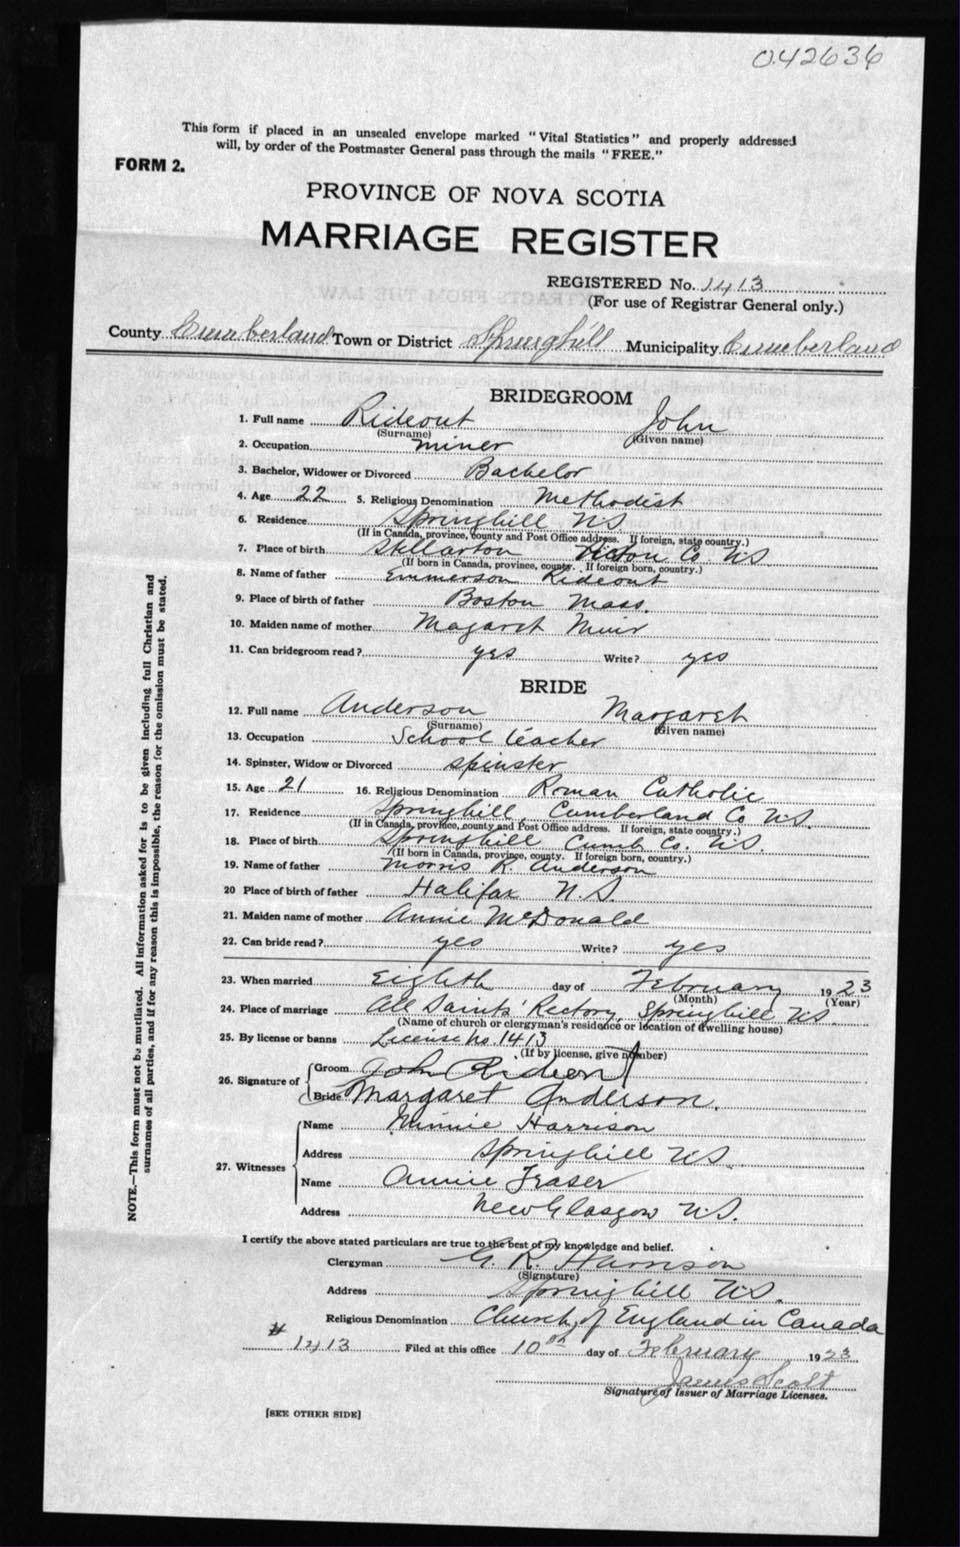 042636
This form if placed in an unsealed envelope marked "Vital Statistics" and properly addressed
will, by order of the Postmaster General pass through the mails "FREE."
FORM 2.
PROVINCE OF NOVA SCOTIA
MARRIAGE REGISTER
REGISTERED No. 1413
(For use of Registrar General only.)
County Cumberland Town or District Springhill Municipality Cumberland
BRIDEGROOM
1. Full name Rideout John
(Surname) (Given name)
2. Occupation miner
3. Bachelor, Widower or Divorced Bachelor
4. Age 22 5. Religious Denomination Methodist
6. Residence Springhill NS
(If in Canada, province, county and Post Office address. If foreign, state country.)
7. Place of birth Stellarton Pictou Co NS
(If born in Canada, province, county. If foreign born, country.)
8. Name of father Emmerson Rideout
9. Place of birth of father Boston Mass.
10. Maiden name of mother Magaret Muir
11. Can bridegroom read? yes Write? yes
BRIDE
12. Full name Anderson Margaret
(Surname) (Given name)
13. Occupation School teacher
14. Spinster, Widow or Divorced spinster
15. Age 21 16. Religious Denomination Roman Catholic
17. Residence Springhill Cumberland Co NS.
(If in Canada, province, county and Post Office address. If foreign, state country.)
18. Place of birth Springhill Cumb Co. NS.
(If born in Canada, province, county. If foreign born, country.)
19. Name of father Morris R. Anderson
20 Place of birth of father Halifax N.S.
21. Maiden name of mother Annie McDonald
22. Can bride read? yes Write? yes
23. When married Eighth day of February 1923
(Month) (Year)
24. Place of marriage All Saints' Rectory, Springhill NS
(Name of church or clergyman's residence or location of dwelling house)
25. By license or banns License No. 1413
(If by license, give number)
26. Signature of Groom John Rideout
Bride Margaret Anderson.
27. Witnesses Name Minnie Harrison
Address Springhill NS.
Name Annie Fraser
Address New Glasgow N.S.
I certify the above stated particulars are true to the best of my knowledge and belief.
Clergyman G. R. Harrison
(Signature)
Address Springhill NS.
Religious Denomination Church of England in Canada
# 1413 Filed at this office 10th day of February 1923
James Scott
Signature of Issuer of Marriage Licenses.
[SEE OTHER SIDE]
NOTE.—This form must not be mutilated. All information asked for is to be given including full Christian and
surnames of all parties, and if for any reason this is impossible, the reason for the omission must be stated.